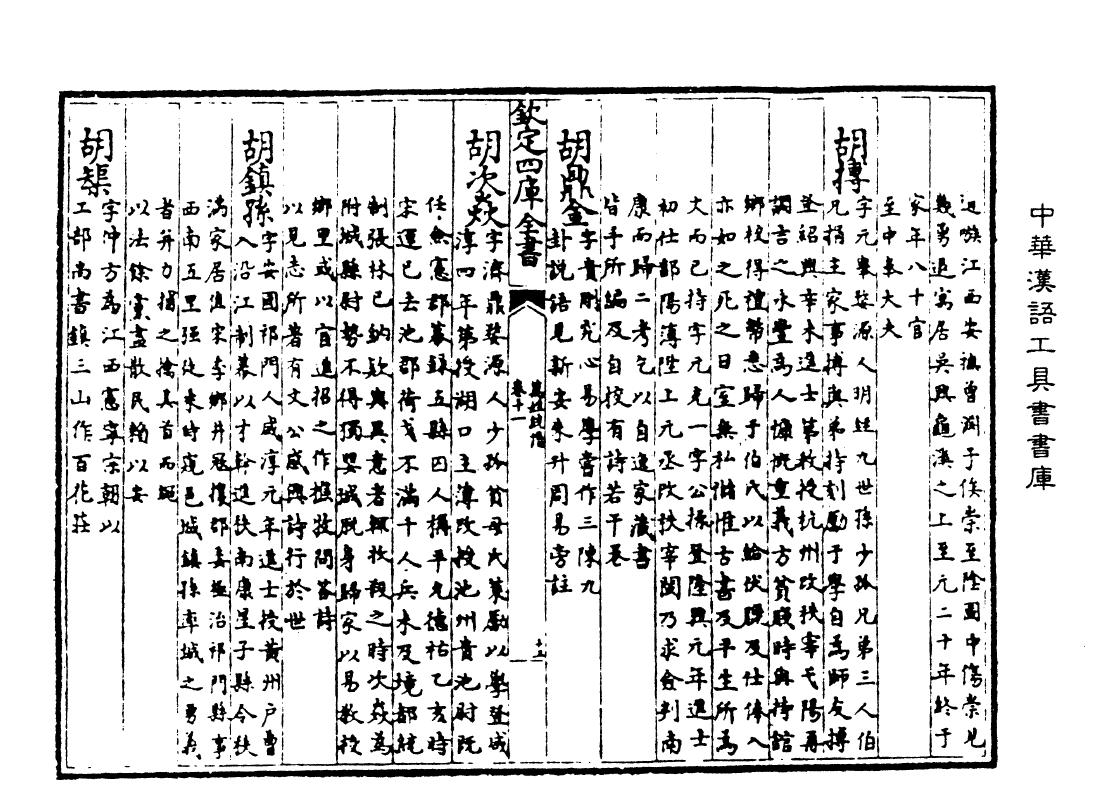 中華漢語工具書書庫
近喉江西安撫曾淵子俟崇至隆國中傷崇見
幾勇退寓居吳興龜溪之上至元二十年終于
家年八十官
至中奉大夫
胡摶
字元舉婺源人玥姓九世孫少孤兄弟三人伯
兄損主家事摶與弟持刻勵于學自為師友摶
登紹興辛未進士第教授杭州改秩宰弋陽再
調言之永豐為人慷慨重義方貧賤時與持館
鄉校得禮幣悉歸于伯氏以給伏臘及仕俸入
亦如之死之日室無私儲惟古書及平生所為
文而已持字元克一字公操登隆興元年進士
初仕鄱陽簿陞上元丞改秩宰閩乃求僉判南
康而歸二考乞以自逸家藏書
皆手所編及自校有詩若干卷
胡鼎金
字貴剛究心易學嘗作三陳九
卦說語見新安朱升周易旁註
欽定四庫全書
萬姓統譜
卷十一
十五
胡次焱
字濟鼎婺源人少孤貧母氏策勵以學登咸
淳四年第授湖口主簿改授池州貴池尉既
任僉憲郡幕録五縣囚人稱平允德祐乙亥時
宋運已去池郡荷戈不滿千人兵未及境都統
制張林已納欵與異意者輒收殺之時次焱為
附城縣尉勢不得獨嬰城脱身歸家以易教授
鄉里或以官進招之作樵牧問答詩
以見志所著有文公感興詩行於世
胡鎮孫
字安國祁門人咸淳元年進士授黃州户曹
入沿江制幕以才幹進秩南康星子縣令秩
滿家居值宋季鄉井寇攘郡委攝治祁門縣事
西南五里强徒來時窺邑城鎮孫率城之勇義
者并力捕之擒其首而繩
以法餘黨盡散民賴以安
胡榘
字仲方為江西憲寧宗朝以
工部尚書鎮三山作百花莊